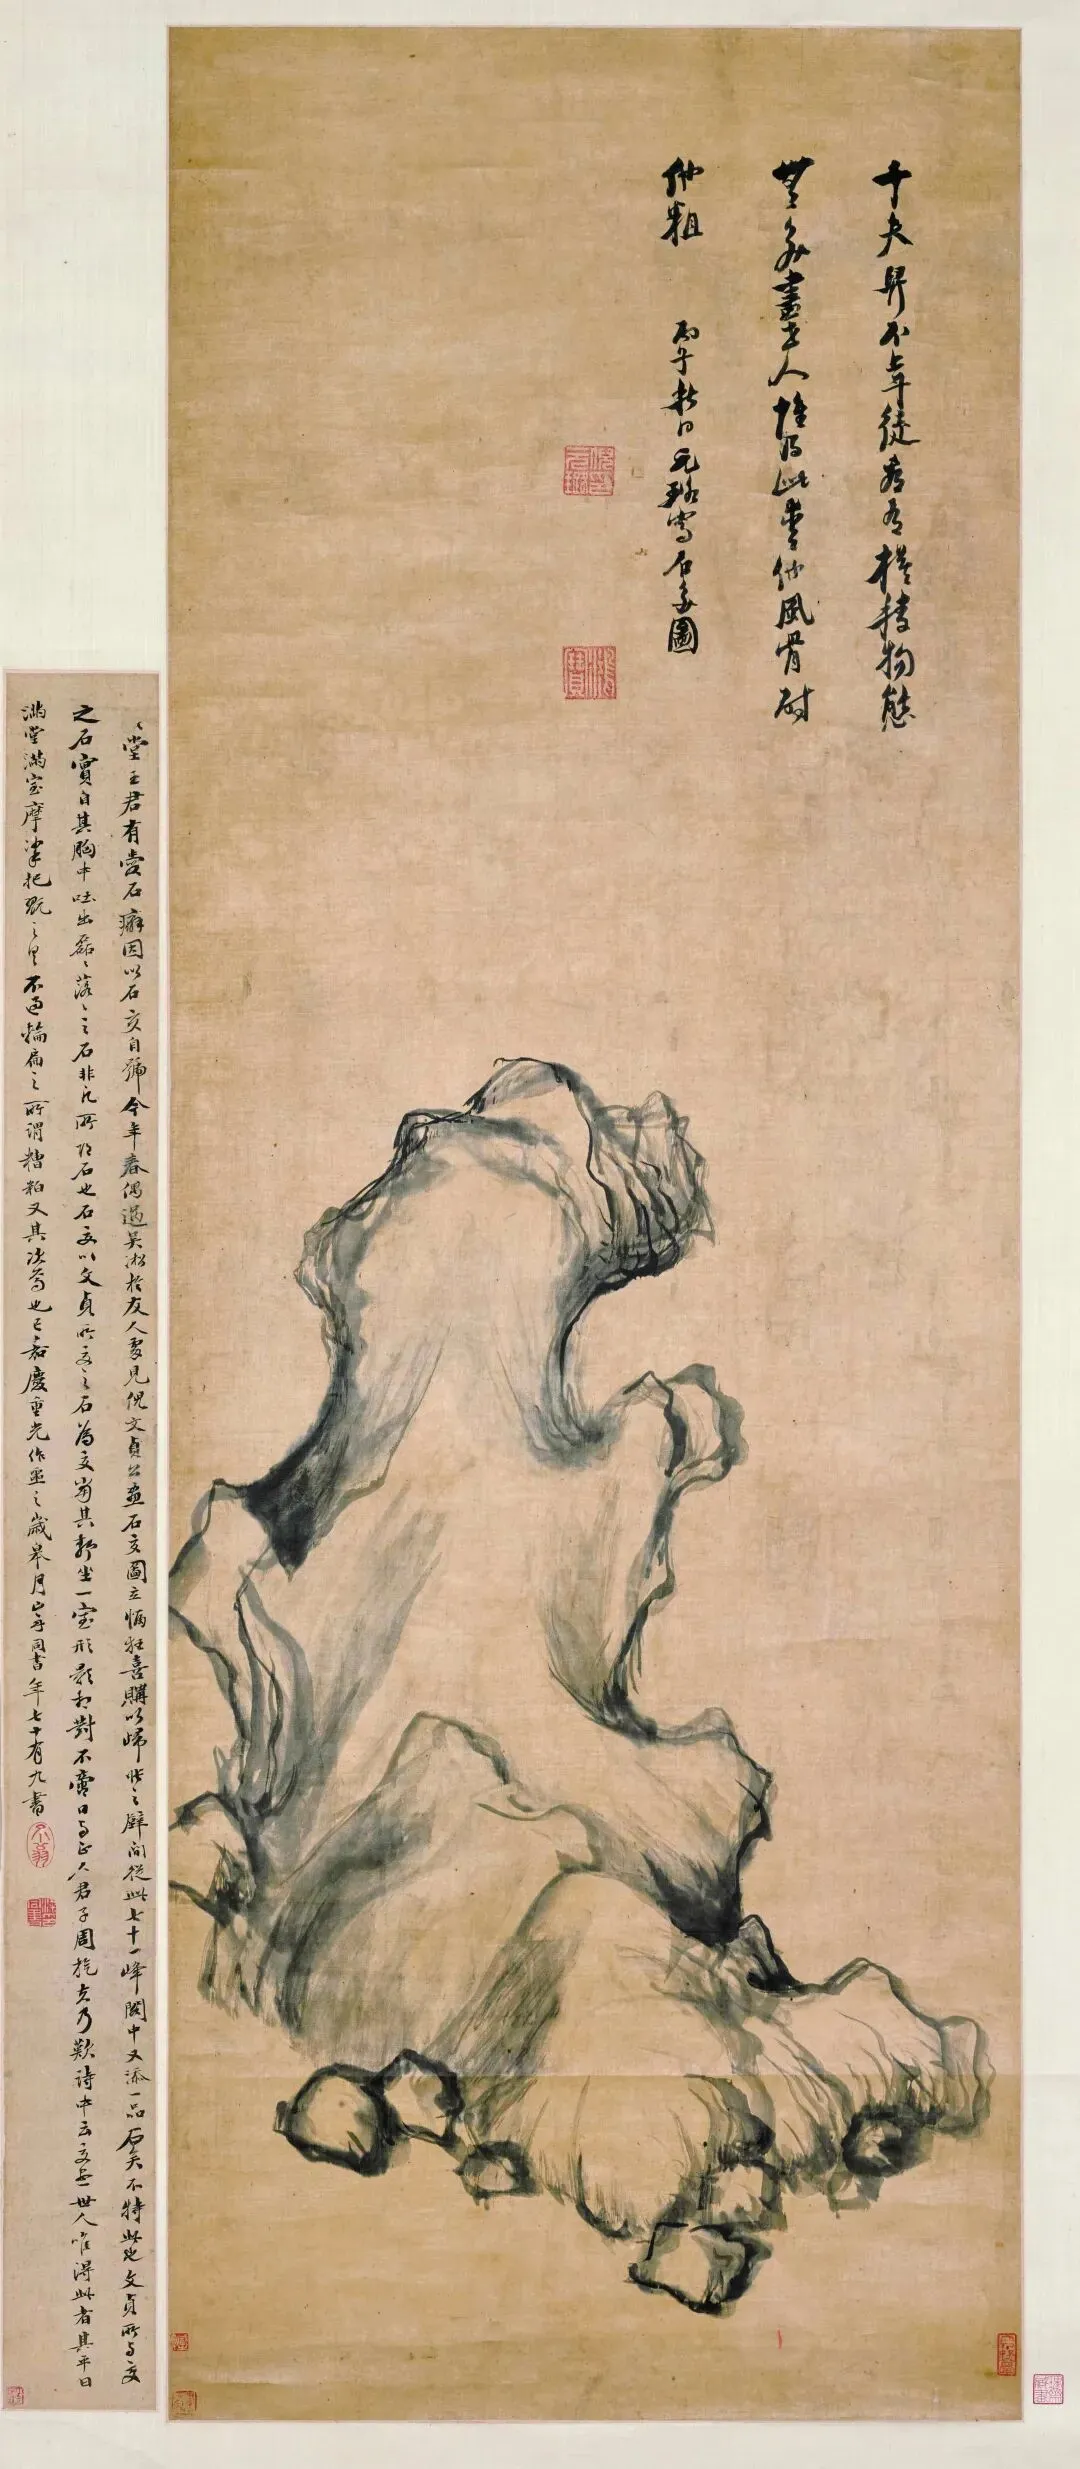 千夫舁不 徒看有模稜物態
人惟得此愛他風骨耐
他粗
丙子秋日元璐寫石交圖
堂王君有愛石癖因以石交自號今年春偶過吳淞於友人處見倪文貞公畫石交圖立幅狂喜購以歸張之壁間從此七十一峰閣中又添一品石矣不特此也文貞所與交
之石實自其胸中吐出磊磊落落之石非凡所 石也石交以文貞所交之石為交當其靜坐一室形影相對不啻日與正人君子周旋矣乃歎詩中云交無一世人唯得此者其平日
滿堂滿室摩挲把玩之具不過輪扁之所謂糟粕又其次焉也已嘉慶重光作噩之歲皋月山舟同書年七十有九書